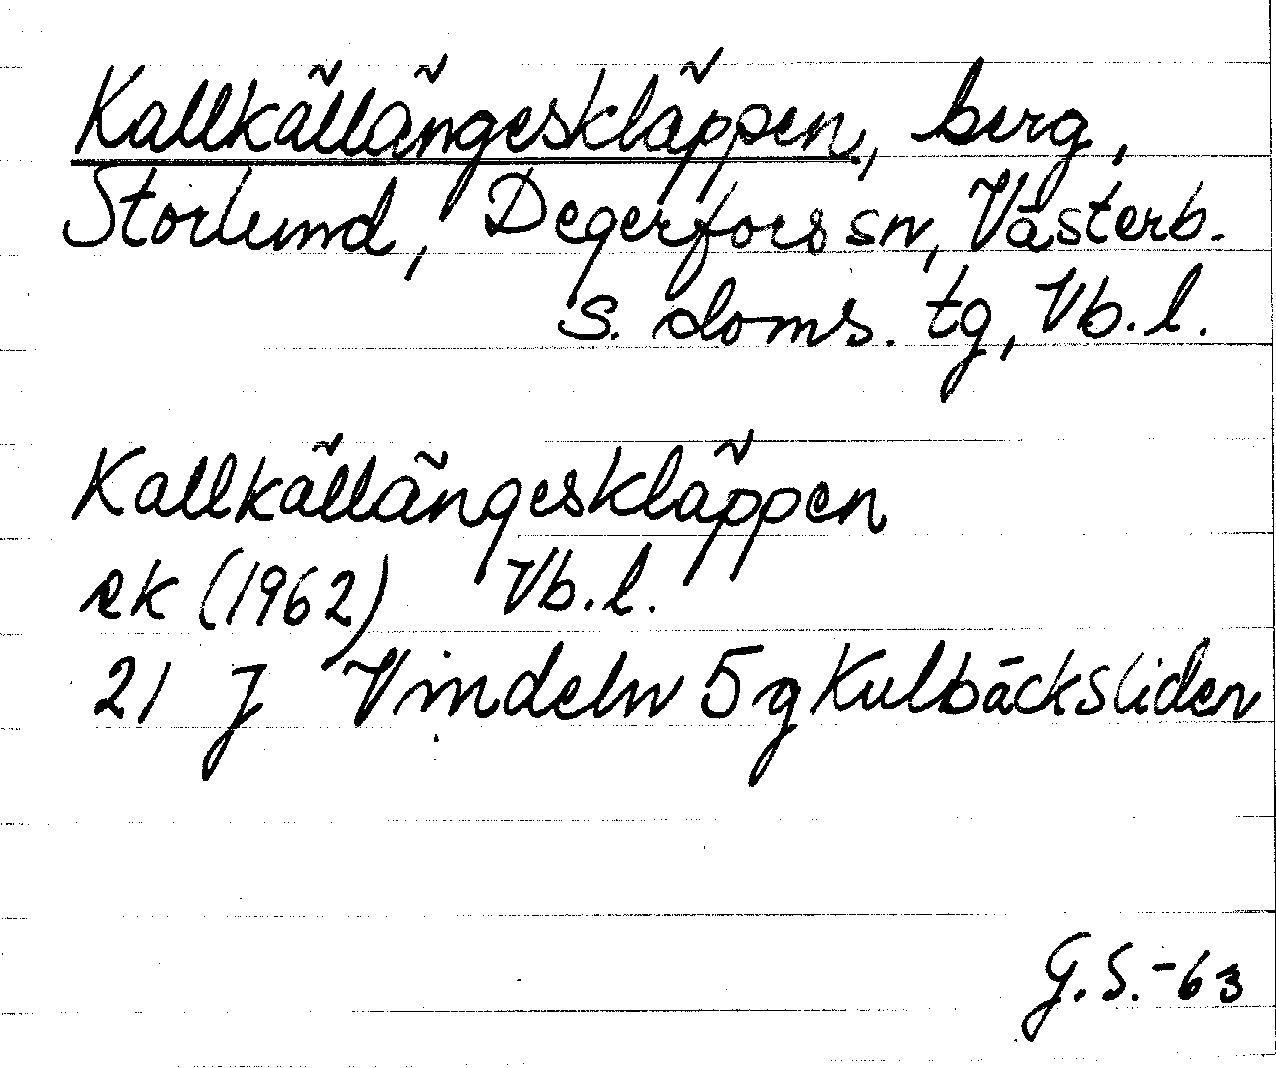 Kallkällängeskläppen, berg,
Storlund, Degerfors sn, Västerb.
s. doms. tg, Vb. l.
Kallkällängeskläppen
ek (1962) Vb. l.
21 J Vindeln 5 g Kulbäcksliden
G. S. -63